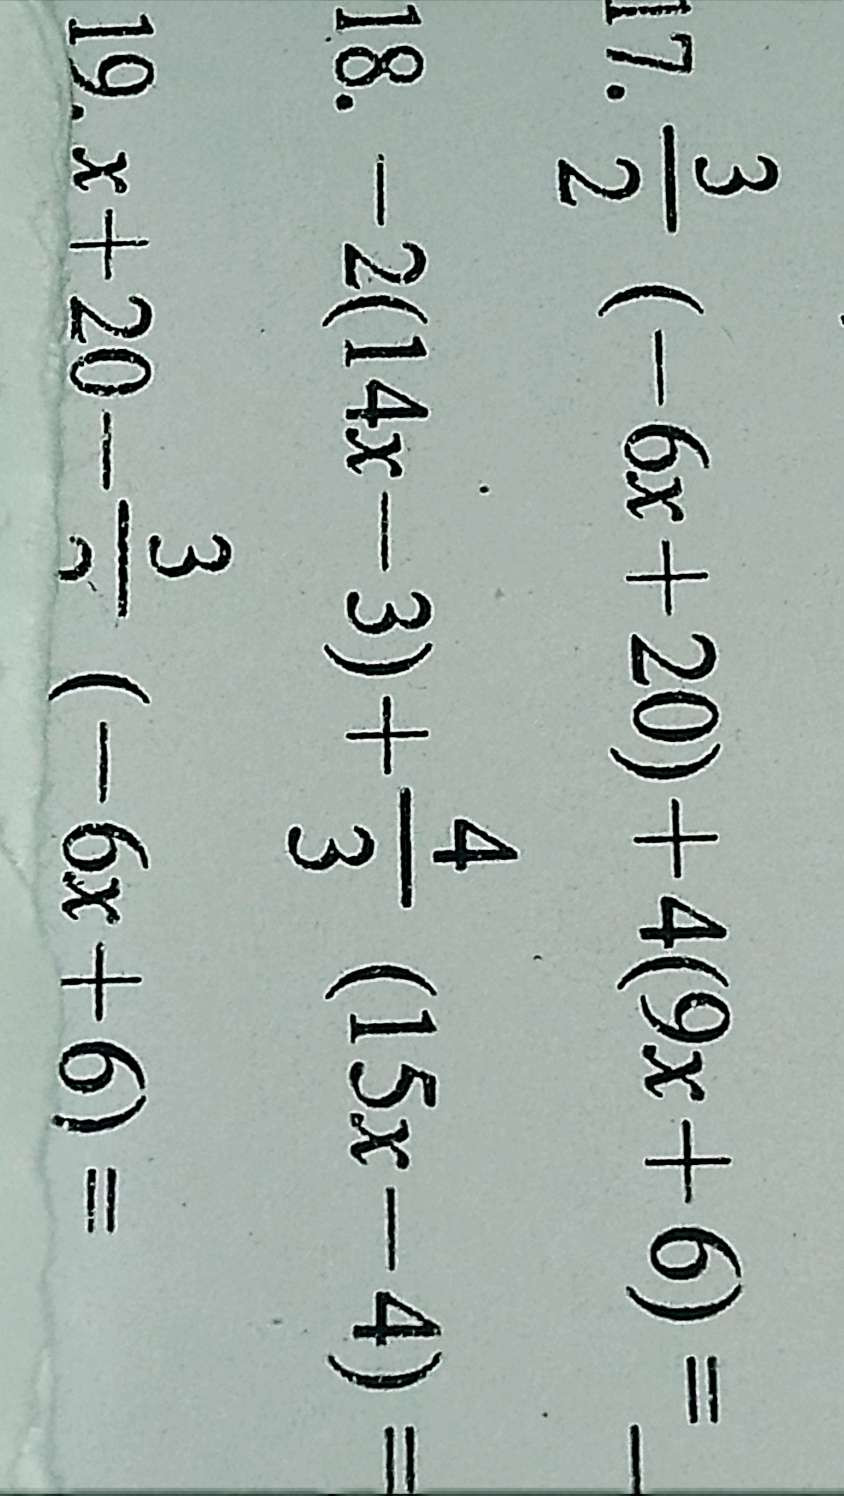 17. 3/2 (−6x + 20) + 4(9x + 6) =
18. −2(14x − 3) + 4/3 (15x − 4) =
19. x + 20 − 3/ (−6x + 6) =